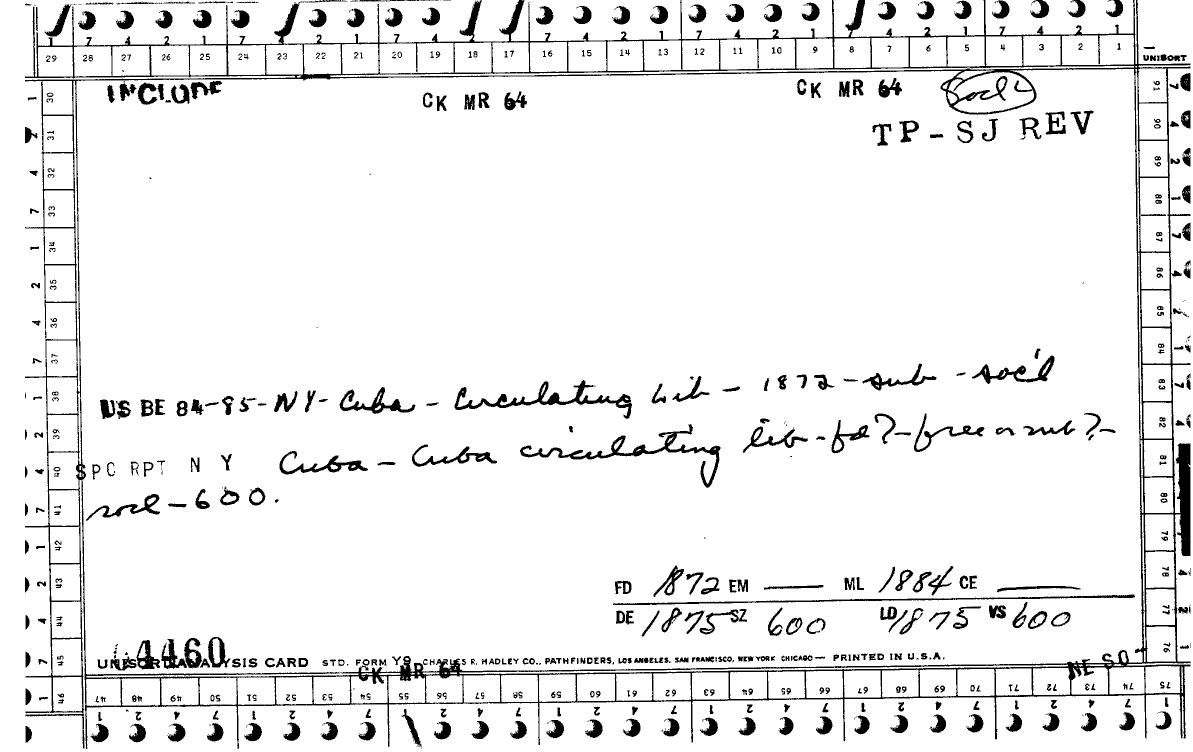 7 4 2 1 7 4 2 1 7 4 2 1 7 4 2 1 7 4 2 1 7 4 2 1
29 28 27 26 25 24 23 22 21 20 19 18 17 16 15 14 13 12 11 10 9 8 7 6 5 4 3 2 1
UNISORT
INCLUDE CK MR 64 CK MR 64 Socl
TP-SJ REV
US BE 84-85-NY-Cuba - Circulating Lib - 1872 - sub - soc'l
SPC RPT N Y Cuba - Cuba circulating lib - fd? - free or sub? -
socl - 600.
FD 1872 EM — ML 1884 CE —
DE 1875 SZ 600 LD 1875 VS 600
4460
UNISORT ANALYSIS CARD STD. FORM Y9 CHARLES R. HADLEY CO., PATHFINDERS, LOS ANGELES, SAN FRANCISCO, NEW YORK CHICAGO — PRINTED IN U.S.A.
CK MR 64 NE SO-
30 31 32 33 34 35 36 37 38 39 40 41 42 43 44 45 46
91 90 89 88 87 86 85 84 83 82 81 80 79 78 77 76
47 48 49 50 51 52 53 54 55 56 57 58 59 60 61 62 63 64 65 66 67 68 69 70 71 72 73 74 75